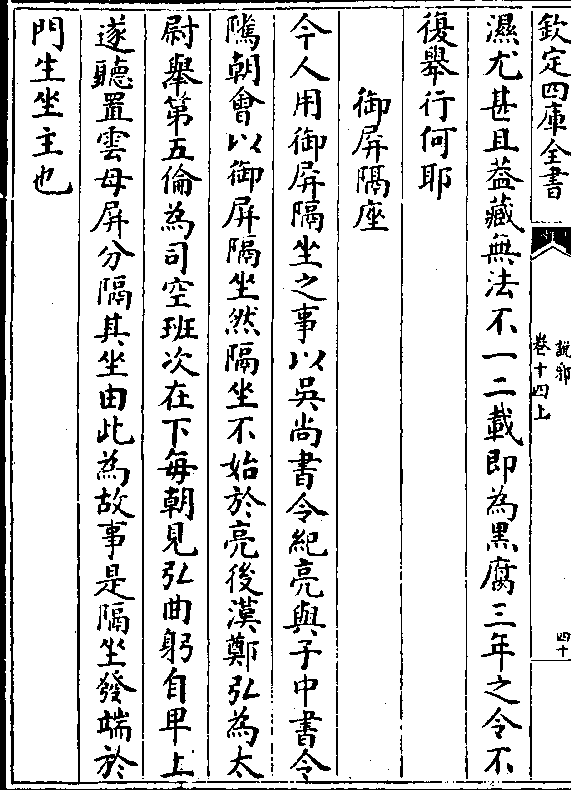 欽定四庫全書
說郛
卷十四上
四十
濕尤甚且葢藏無法不一二載即為黒腐三年之令不
復舉行何耶
御屏隔座
今人用御屏隔坐之事以吳尚書令紀亮與子中書令
隲朝會以御屏隔坐然隔坐不始於亮後漢鄭弘為太
尉舉第五倫為司空班次在下毎朝見弘曲躬自卑上
遂聽置雲母屏分隔其坐由此為故事是隔坐發端於
門生坐主也